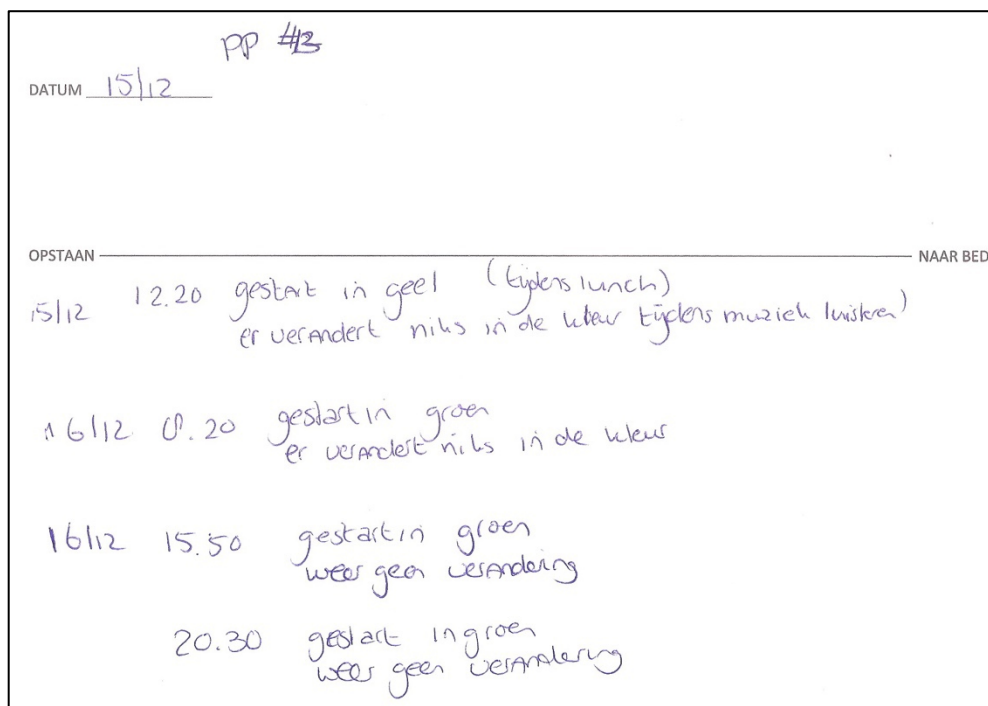 PP #3
DATUM 15/12
OPSTAAN NAAR BED
15/12 12.20 gestart in geel (tijdens lunch)
er verandert niks in de kleur tijdens muziek luisteren)
16/12 8.20 gestart in groen
er verandert niks in de kleur
16/12 15.50 gestart in groen
weer geen verandering
20.30 gestart in groen
weer geen verandering